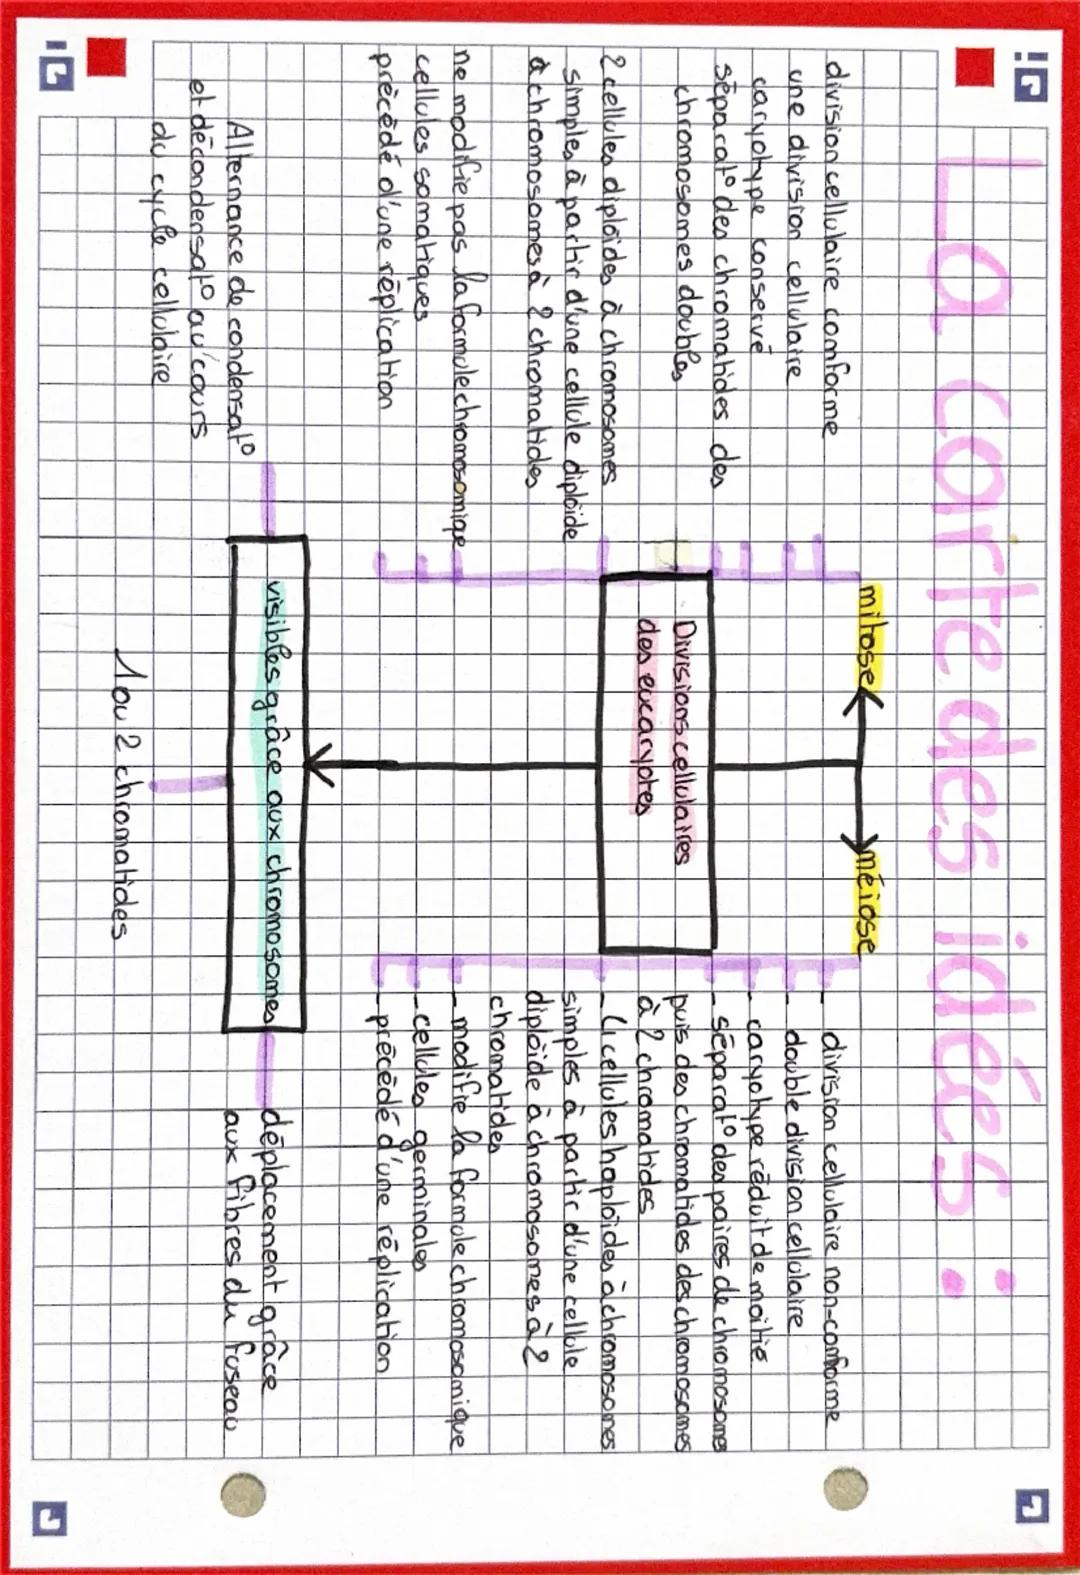 La carte des idées :
mitose
méiose
division cellulaire comforme
une division cellulaire
caryotype conservé
séparat° des chromatides des
chromosomes doubles
2 cellules diploïdes à chromosomes
simples à partir d'une cellule diploïde
à chromosomes à 2 chromatides
ne modifie pas la formule chromosomique
cellules somatiques
précédé d'une réplication
Divisions cellulaires
des eucaryotes
- division cellulaire non-comforme
- double division cellulaire
- caryotype réduit de moitié
- séparat° des paires de chromosomes
puis des chromatides des chromosomes
à 2 chromatides
- 4 cellules haploïdes à chromosomes
simples à partir d'une cellule
diploïde à chromosomes à 2
chromatides
- modifie la formule chromosomique
- cellules germinales
- précédé d'une réplication
Alternance de condensat°
et décondensat° au cours
du cycle cellulaire
visibles grâce aux chromosomes
déplacement grâce
aux fibres du fuseau
1 ou 2 chromatides